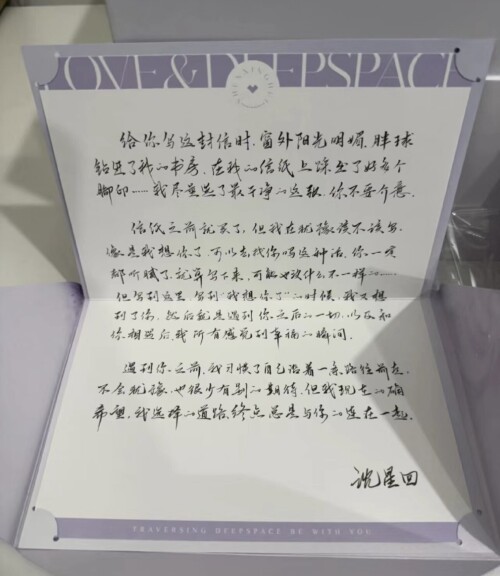 LOVE&DEEPSPACE
给你写这封信时，窗外阳光明媚，胖球
钻进了我的书房，在我的信纸上踩出了好多个
脚印……我尽量选了最干净的这张，你不要介意。
信纸之前就买了，但我在犹豫该不该写。
像是我想你了，可以去找你吗这种话，你一定
都听腻了，就算写下来，可能也没什么不一样的……
但写到这里，写到“我想你了”的时候，我又想
到了你，然后就是遇到你之后的一切，以及和
你相遇后我所有感觉到幸福的瞬间。
遇到你之前，我习惯了自己沿着一条路往前走，
不会犹豫，也很少有别的期待，但我现在的确
希望，我选择的道路，终点总是与你的连在一起。
沈星回
TRAVERSING DEEPSPACE BE WITH YOU